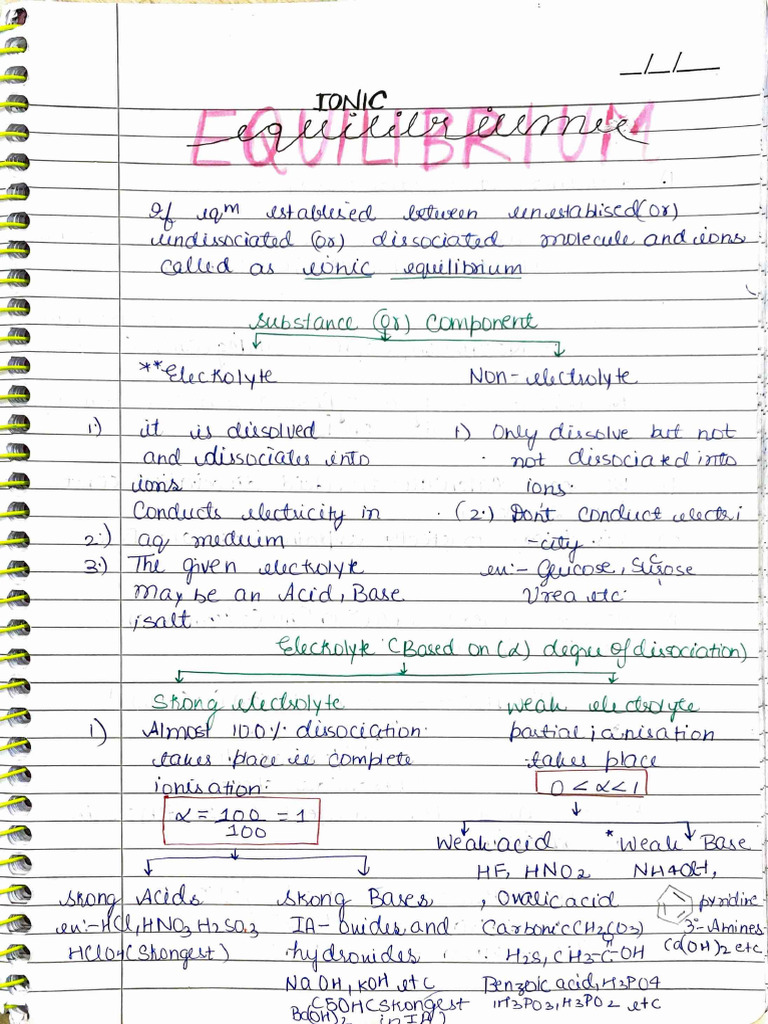 _/_/__
IONIC
EQUILIBRIUM
equilibrium
If eqm establised between unestablised (or)
undissociated (or) dissociated molecule and ions
called as ionic equilibrium
Substance (or) component
**Electrolyte
Non-electrolyte
1.) it is dissolved
and dissociates into
ions
Conducts electricity in
2.) aq meduim
3.) The given electrolyte
may be an Acid, Base
, salt
1) Only dissolve but not
not dissociated into
ions.
(2.) Don't conduct electri
-city.
ex:- Glucose, Sucrose
Urea etc.
Electrolyte (Based on (α) degree of dissociation)
Strong electrolyte
weak electrolyte
1) Almost 100% dissociation
takes place ie complete
ionisation:
α = 100/100 = 1
partial ianisation
takes place
0 < α < 1
Strong Acids
ex:- HCl, HNO3 H2SO3
HClO4 (Strongest)
Strong Bases
IA-Oxides and
hydroxides
NaOH, KOH etc
CSOH (Strongest
Ba(OH)2 in IA)
Weak acid
HF, HNO2
, Oxalic acid
Carbonic CH2CO3)
O
H2S, CH3-C-OH
Benzoic acid, H3PO4
H3PO3, H3PO2 etc
*Weak Base
NH4OH,
pyridine
3°-Amines
Cd(OH)2 etc